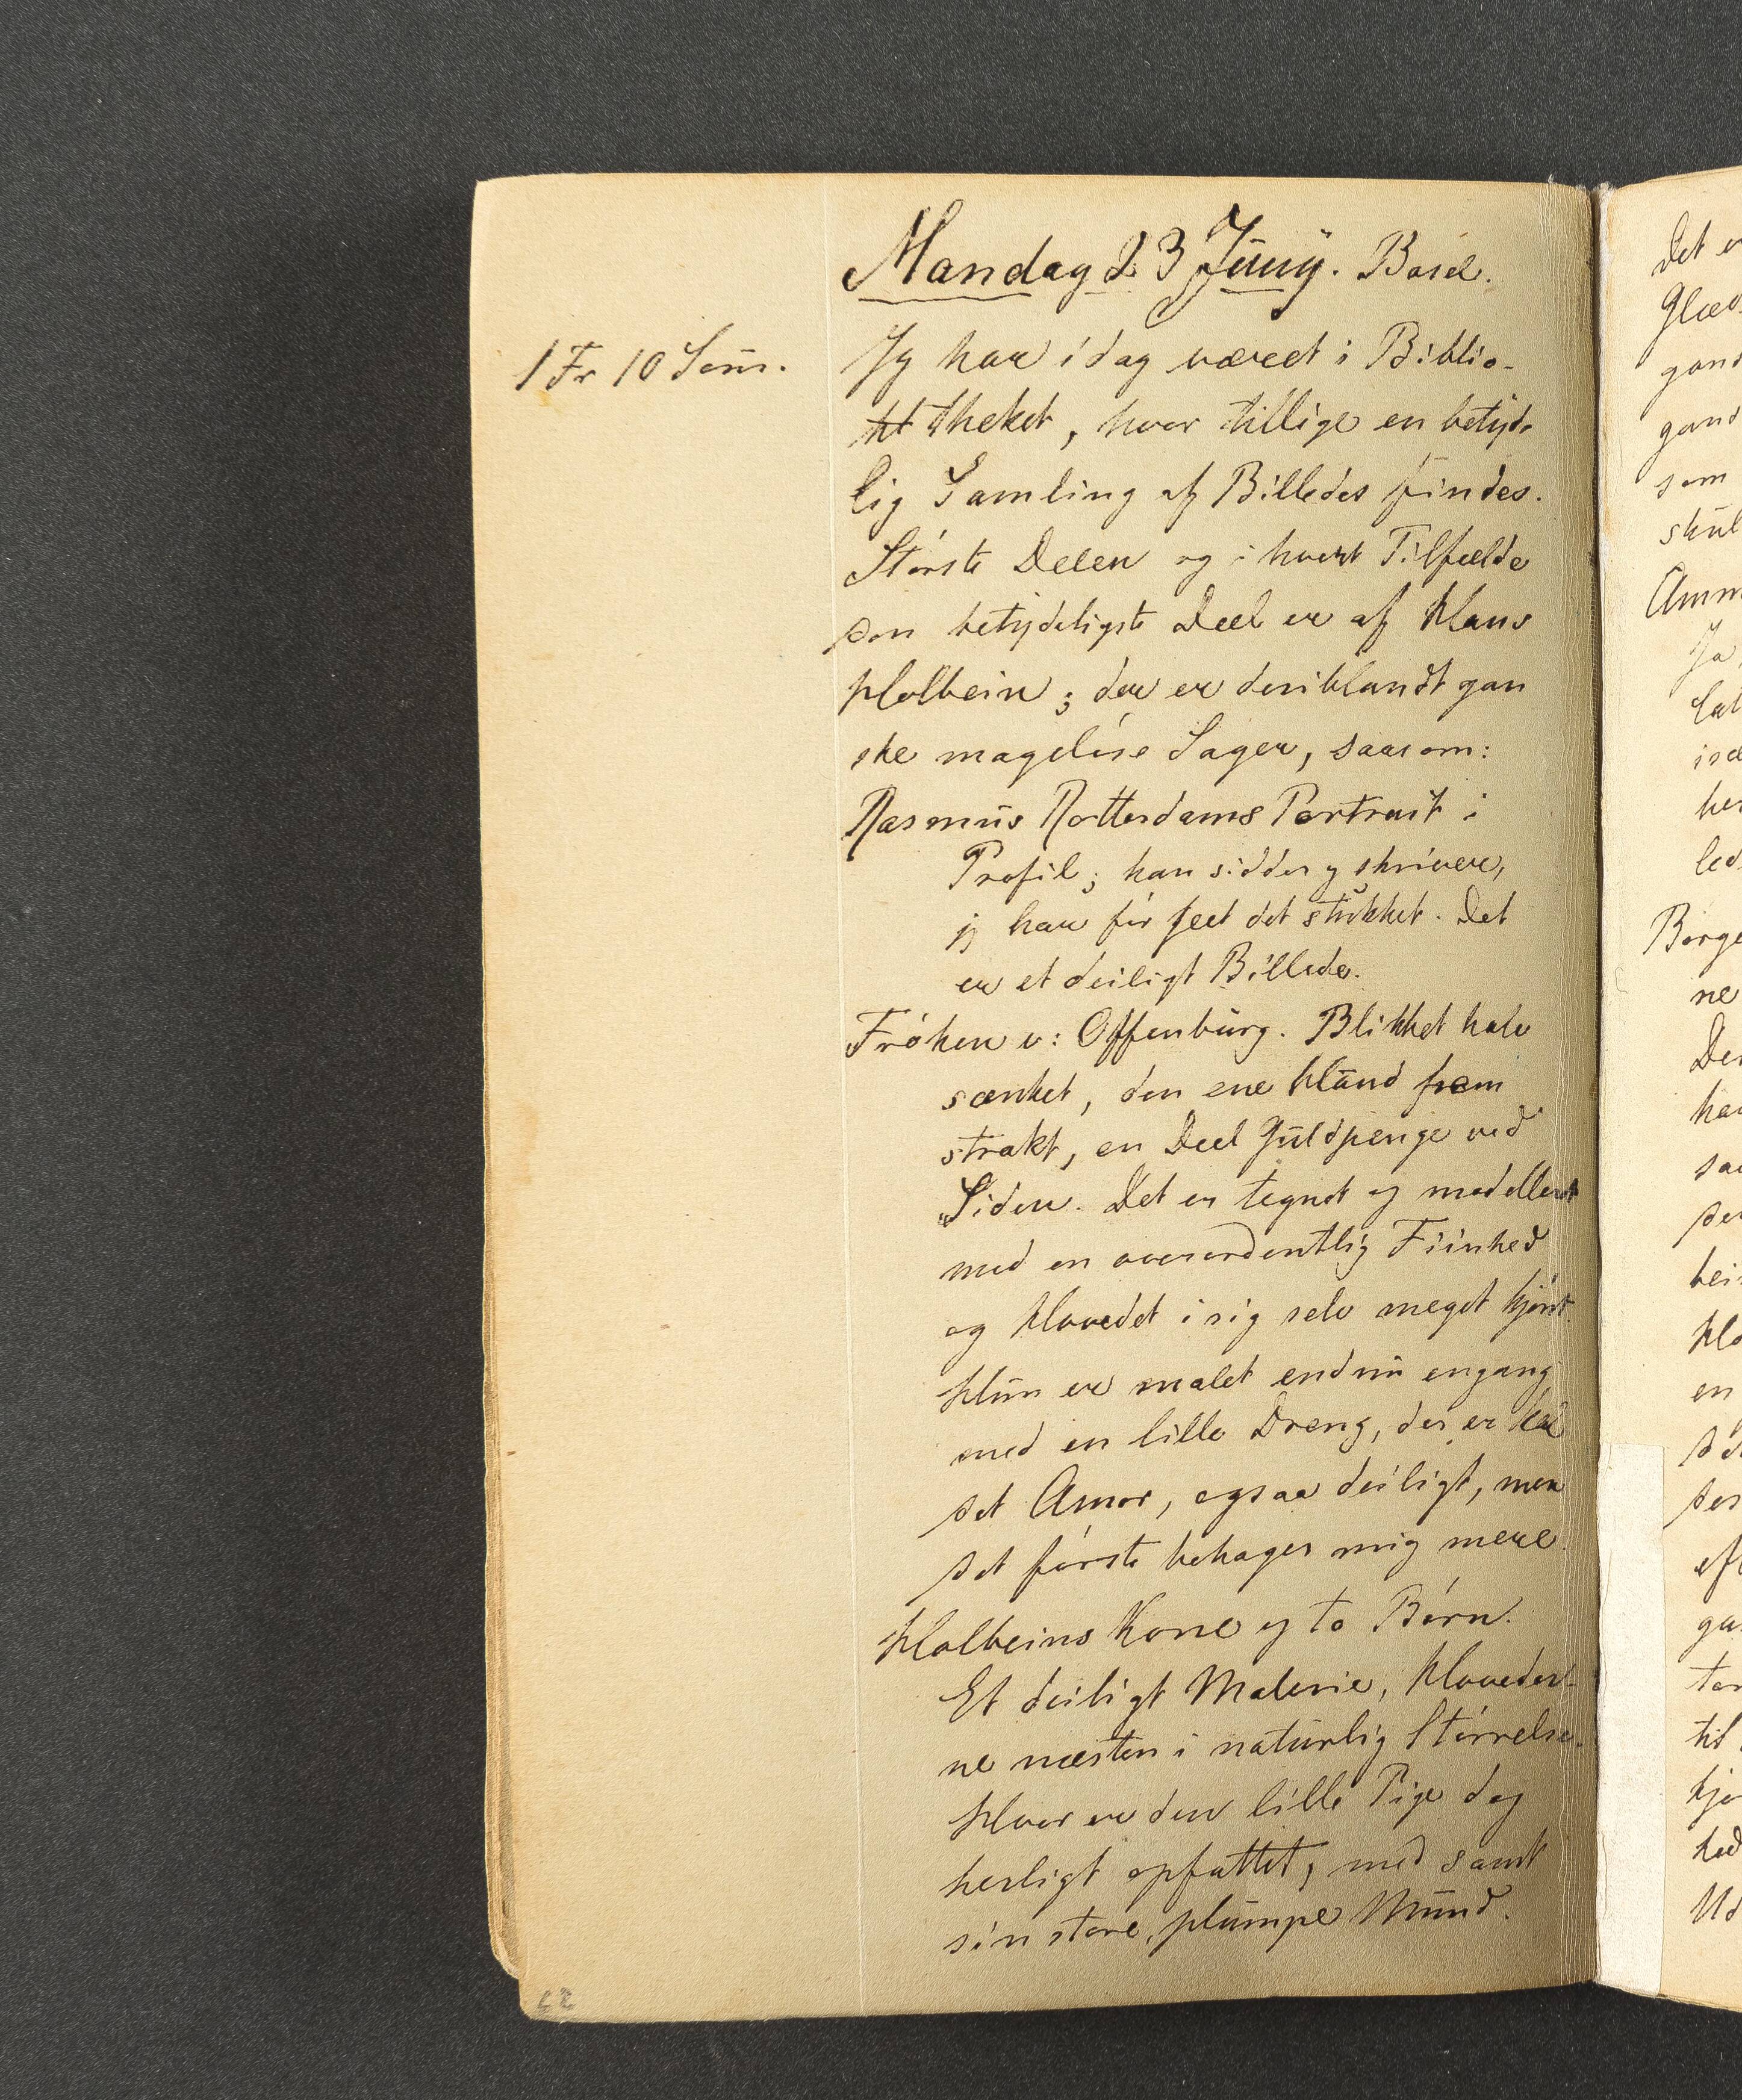 Mandag 23 Juny. Basel.
1 Fr 10 Sous.
Jeg har idag været i Biblio-
tht theket, hvor tillige en betyde
lig Samling af Billeder findes.
Störste Delen og i hvert Tilfælde
den betydeligste Deel er af Hans
Holbein; der er deriblandt gan
ske magelöse Sager, saasom:
Rasmus Rotterdams Portrait i
Profil; han sidder og skriver,
jeg har för seet det stukket. Det
er et deiligt Billede.
Fröken v: Offenburg. Blikket halv
sænket, den ene Haand frem
strakt, en Deel Guldpenge ved
Siden. Det er tegnet og modelleret
med en overordentlig Fiinhed
og Hovedet i sig selv meget kjönt.
Hun er malet endnu engang
med en lille Dreng, der er kal
det Amor, ogsaa deiligt, men
det förste behager mig mere.
Holbeins Kone og to Börn.
Et deiligt Malerie, Hoveder-
ne næsten i naturlig Störrelse.
Hvor er den lille Pige dog
herligt opfattet, med samt
sin store, plumpe Mund.
62
Det er
Glæd
gand
gand
som
skul
Amm
Ja,
isæ
her
led
Borge
ne
Der
har
saa
der
bei
Ho
en
der
eft
ga
til
kjö
hed